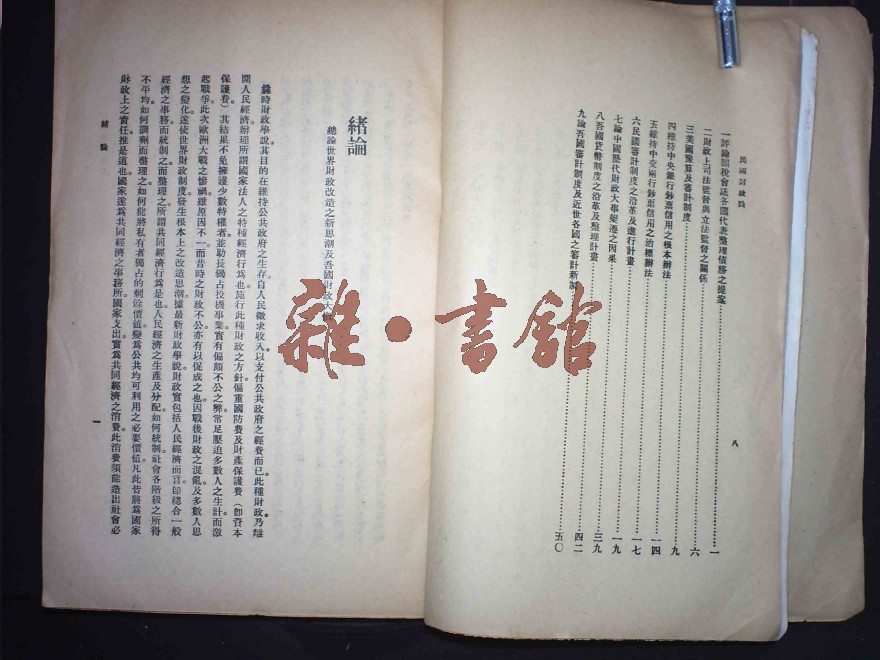 民國財政論
一評論關稅會議各國代表整理債務之提案……一
二財政上司法監督與立法監督之關係……六
三美國豫算及審計制度……九
四維持中央銀行鈔票信用之根本辦法……一四
五維持中交兩行鈔票信用之治標辦法……一七
六民國審計制度之沿革及進行計畫……一九
七論中國歷代財政大事變遷之因果……三九
八吾國貨幣制度之沿革及整理計畫……四二
九論吾國審計制度及近世各國之審計新制……五〇
八
緒論
總論世界財政改造之新思潮及吾國財政大
時財政學說其目的在維持公共政府之生存自人民徵求收入以支付公共政府之經費而已此種財政乃離
開人民經濟辦理所謂國家法人之特種經濟行為也施行此種財政之方針偏重國防費及財產保護費(卽資本
保護費)其結果不免擁護少數特權者並助長獨占投機事業實有偏頗不公之弊常足壓迫多數人之生計而激
起戰爭此次歐洲大戰之慘禍雖原因不一而昔時之財政不公亦有以促成之也因戰後財政之混亂及多數人思
想之變化遂使世界財政制度發生根本上之改造思潮據最新財政學說財政實包括人民經濟而言卽總合一般
經濟之事務而統制之而整理之所謂共同經濟行為是也人民經濟之生產及分配如何統制社會各階級之所得
不平均如何調劑而整理之如何能將私有者獨占的剩餘價值變爲公共均可利用之必要價值凡此皆將爲國家
財政上之責任推是道也國家遂爲共同經濟之事務所國家支出實爲共同經濟之消費此消費須能造出社會必
緒論
一
雜·書館